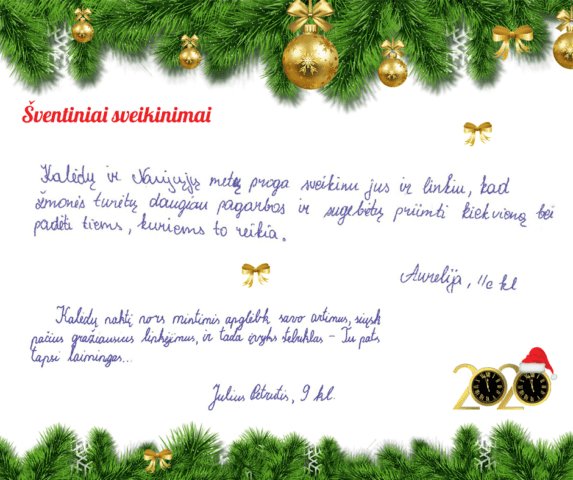 Šventiniai sveikinimai
Kalėdų ir Naujųjų metų proga sveikinu jus ir linkiu, kad
žmonės turėtų daugiau pagarbos ir sugebėtų priimti kiekvieną bei
padėti tiems, kuriems to reikia.
Aurelija, IIc kl
Kalėdų naktį nors mintimis apglėbk savo artimus, siųsk
pačius gražiausius linkėjimus, ir tada įvyks stebuklas - Tu pats
tapsi laimingas...
Julius Petrutis, 9 kl.
2020